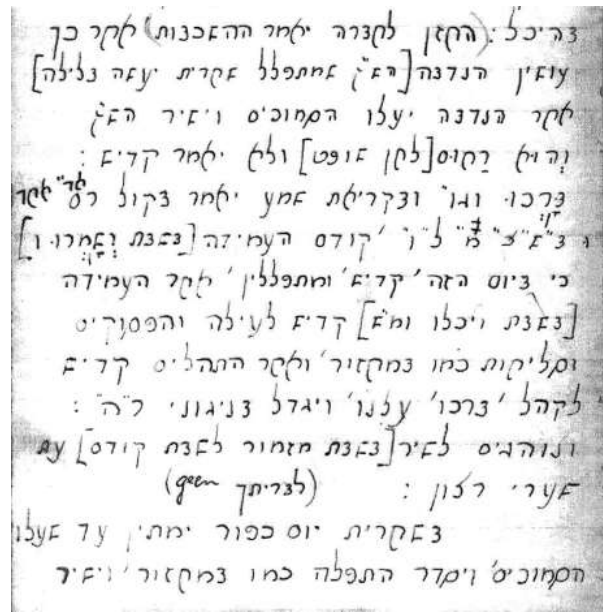 בהיכל: (החזן לחברה יאמר ההשכבות) אחר כך
עושין הנדבה [הש"ץ שמתפלל שחרית יעשה בלילה]
אחר הנדבה יעלו הסמוכים וישיר הש"ץ
וְהוּא רַחוּם [לחן שופט] ולא יאמר קדיש :
בָּרְכוּ וגו' ובקריאת שמע יאמר בקול רם אחר
קודם העמידה [בשבת וְשָׁמְרוּ ו]
כי ביום הזה' קדיש' ומתפללין' אחר העמידה
[בשבת ויכלו ומ"ש] קדיש לעילה והפסוקים
וסליחות כמו במחזור' ואחר התהלים קדיש
לקהל' ברכו' עלנו' ויגדל בניגוני ר"ה :
ונוהגים לשיר [בשבת מזמור לשבת קודם] עת
שערי רצון : (לבריתך geen)
בשחרית יום כפור ימתין עד שעלו
הסמוכים' ויסדר התפלה כמו במחזור' וישיר